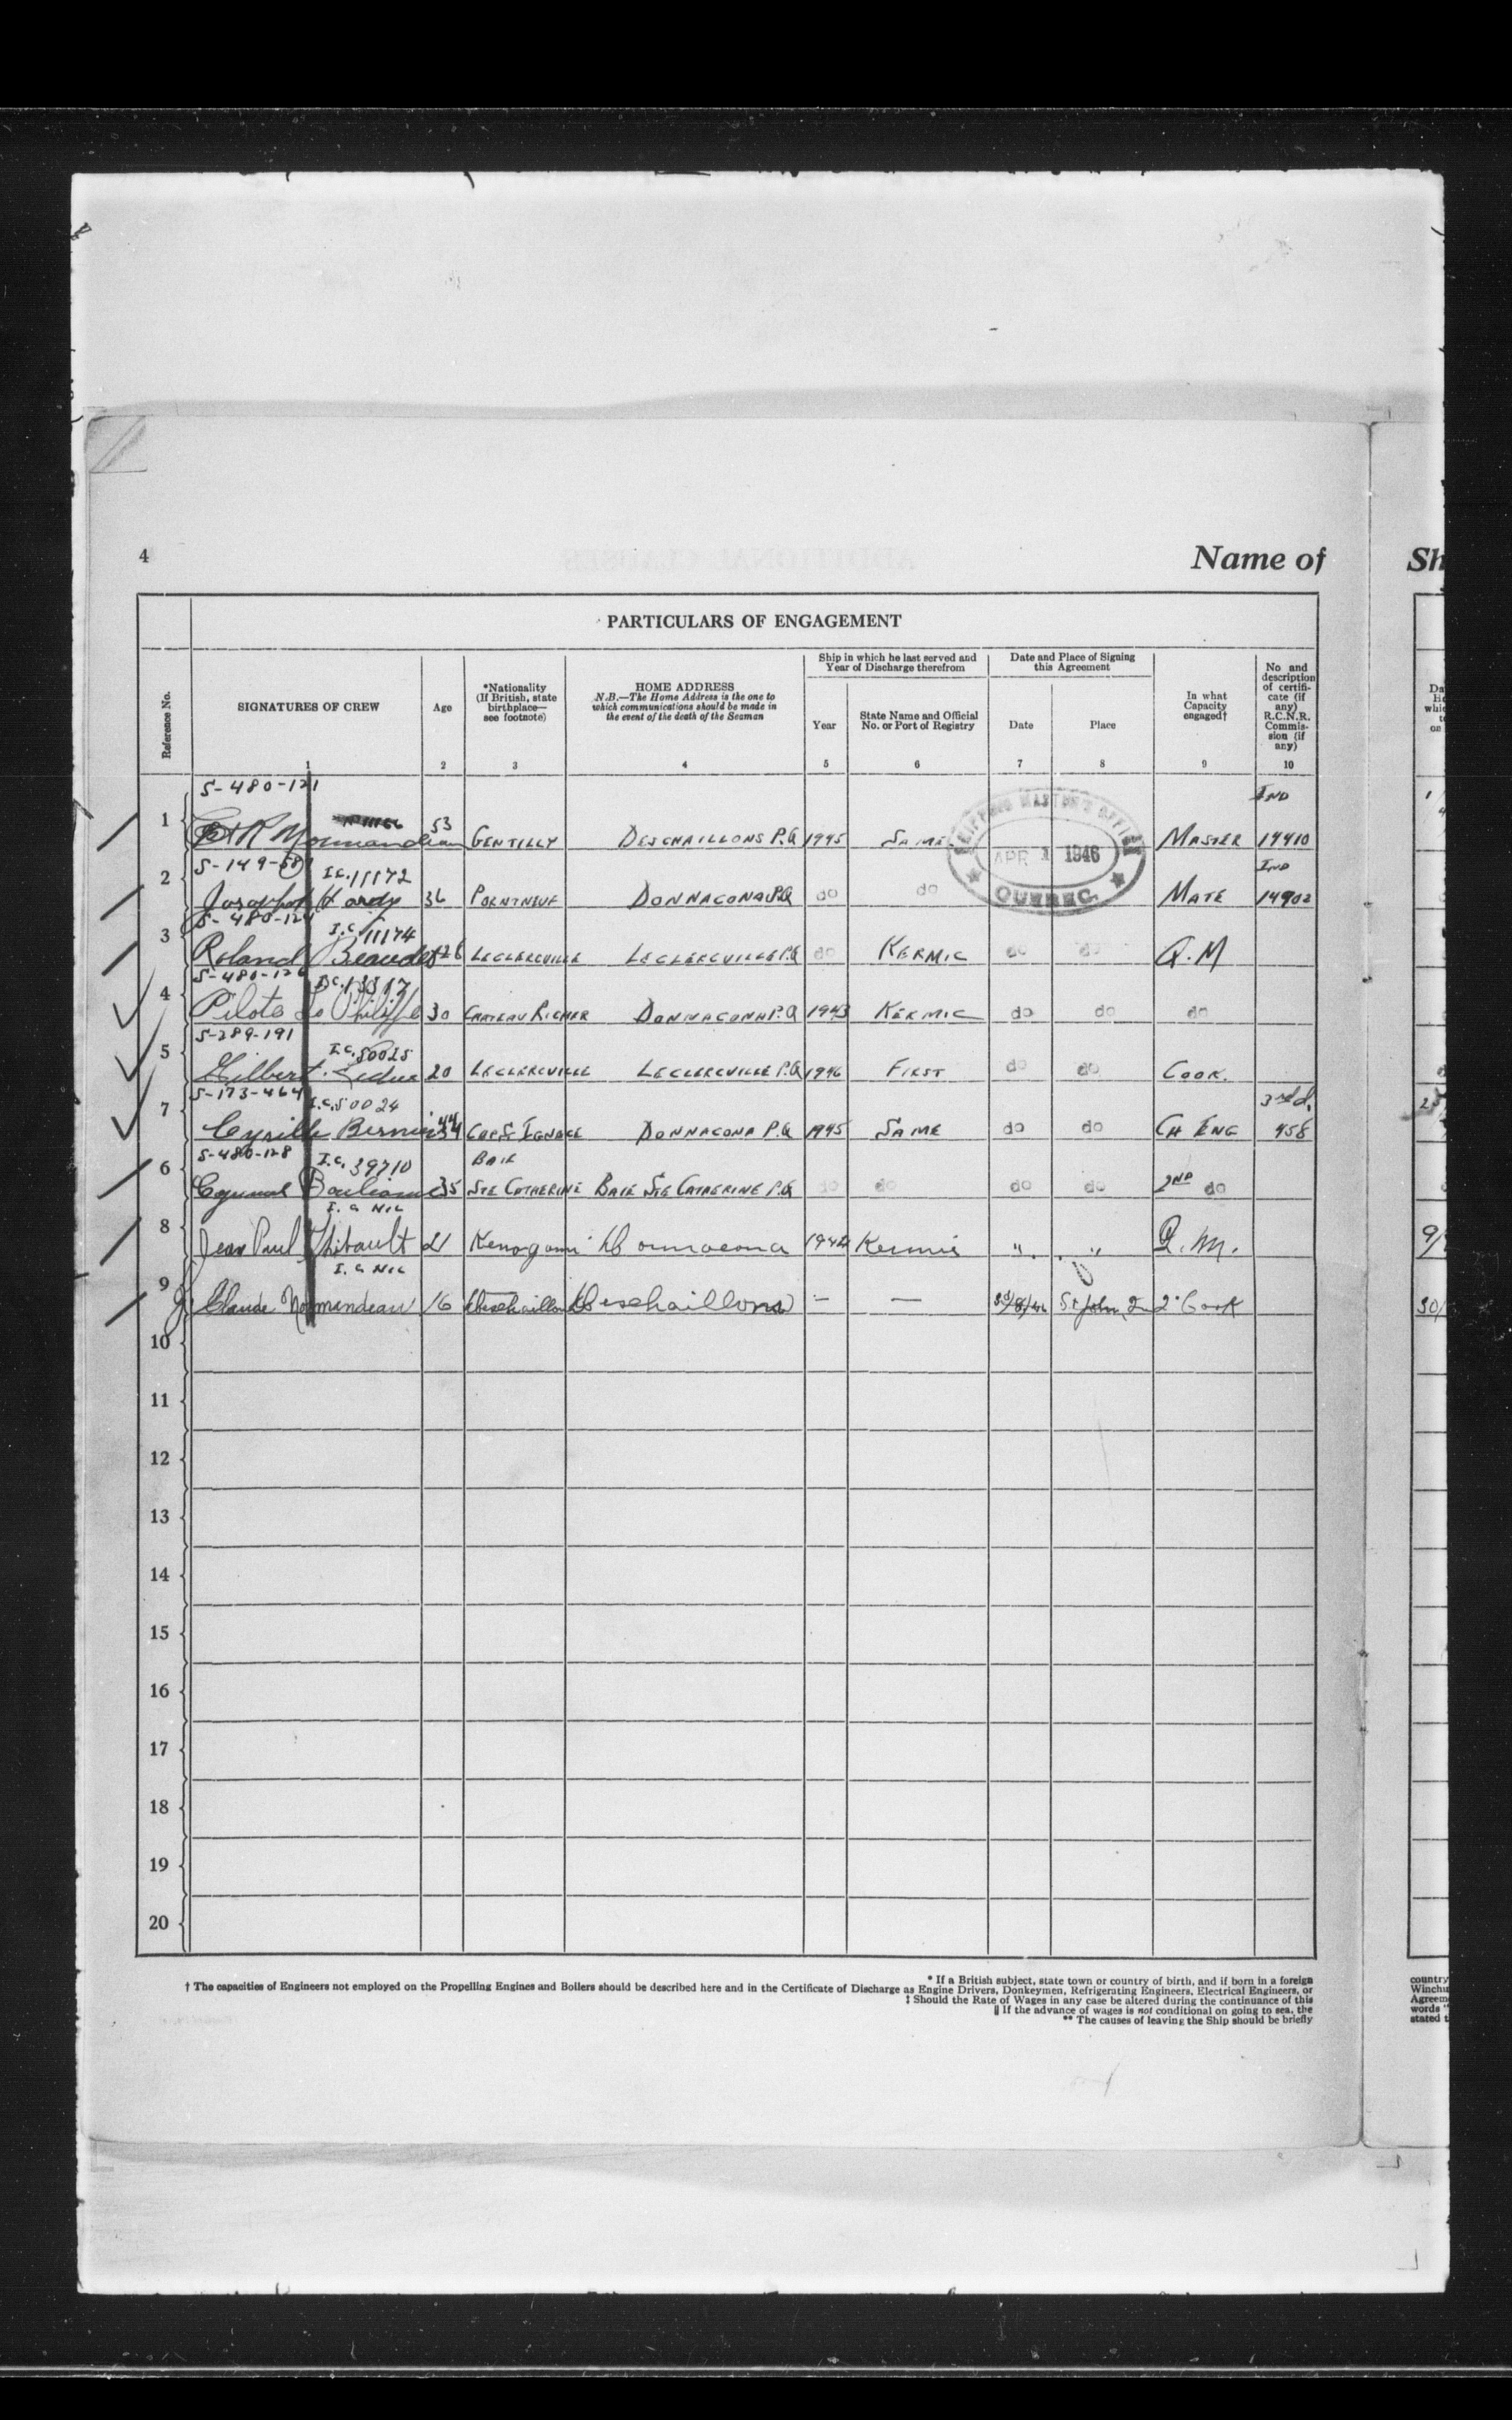 4
Name of
Sh
PARTICULARS OF ENGAGEMENT
Reference No.
SIGNATURES OF CREW
Age
*Nationality
(If British, state
birthplace—
see footnote)
HOME ADDRESS
N.B.—The Home Address is the one to
which communications should be made in
the event of the death of the Seaman
Ship in which he last served and
Year of Discharge therefrom
Year
State Name and Official
No. or Port of Registry
Date and Place of Signing
this Agreement
Date
Place
In what
Capacity
engaged†
No and
description
of certifi-
cate (if
any)
R.C.N.R.
Commis-
sion (if
any)
1 2 3 4 5 6 7 8 9 10
S-480-121 IND
1 Normandeau 53 GENTILLY DESCHAILLONS P.Q 1945 SAME MASTER 14410
SHIPPING MASTER'S OFFICE
APR 1 1946
QUEBEC
S-149-581 I.C. 11172 IND
2 Josaphat Hardy 36 PORNTNEUF DONNACONA P.Q do do MATE 14902
S-480-124 I.C. 11174
3 Roland Beaudet 26 LECLERCVILLE LECLERCVILLE P.Q do KERMIC do do Q.M
S-480-126 I.C. 13317
4 Pilote Philippe 30 CHATEAU RICHER DONNACONA P.Q 1943 KERMIC do do do
S-289-191 I.C. 50025
5 Gilbert Leduc 20 LECLERCVILLE LECLERCVILLE P.Q 1946 FIRST do do COOK.
S-173-464 I.C. 50024 3rd cl.
7 Cyrille Bernier 44 CAP ST IGNACE DONNACONA P.Q 1945 SAME do do CH ENG 458
S-480-128 I.C. 39710 BAIE
6 Boulianne 35 STE CATHERINE BAIE STE CATHERINE P.Q do do do do 2ND do
I. C. NIL
8 Jean Paul Thibault 21 Kenogami Donnacona 1944 Kermic " " Q.M.
I. C. NIL
9 Claude Normandeau 16 Deschaillons Deschaillons — — St John 2° Cook
10
11
12
13
14
15
16
17
18
19
20
* If a British subject, state town or country of birth, and if born in a foreign
† The capacities of Engineers not employed on the Propelling Engines and Boilers should be described here and in the Certificate of Discharge as Engine Drivers, Donkeymen, Refrigerating Engineers, Electrical Engineers, or
‡ Should the Rate of Wages in any case be altered during the continuance of this
‖ If the advance of wages is not conditional on going to sea, the
** The causes of leaving the Ship should be briefly
country
Winchm
Agreem
words "
stated t